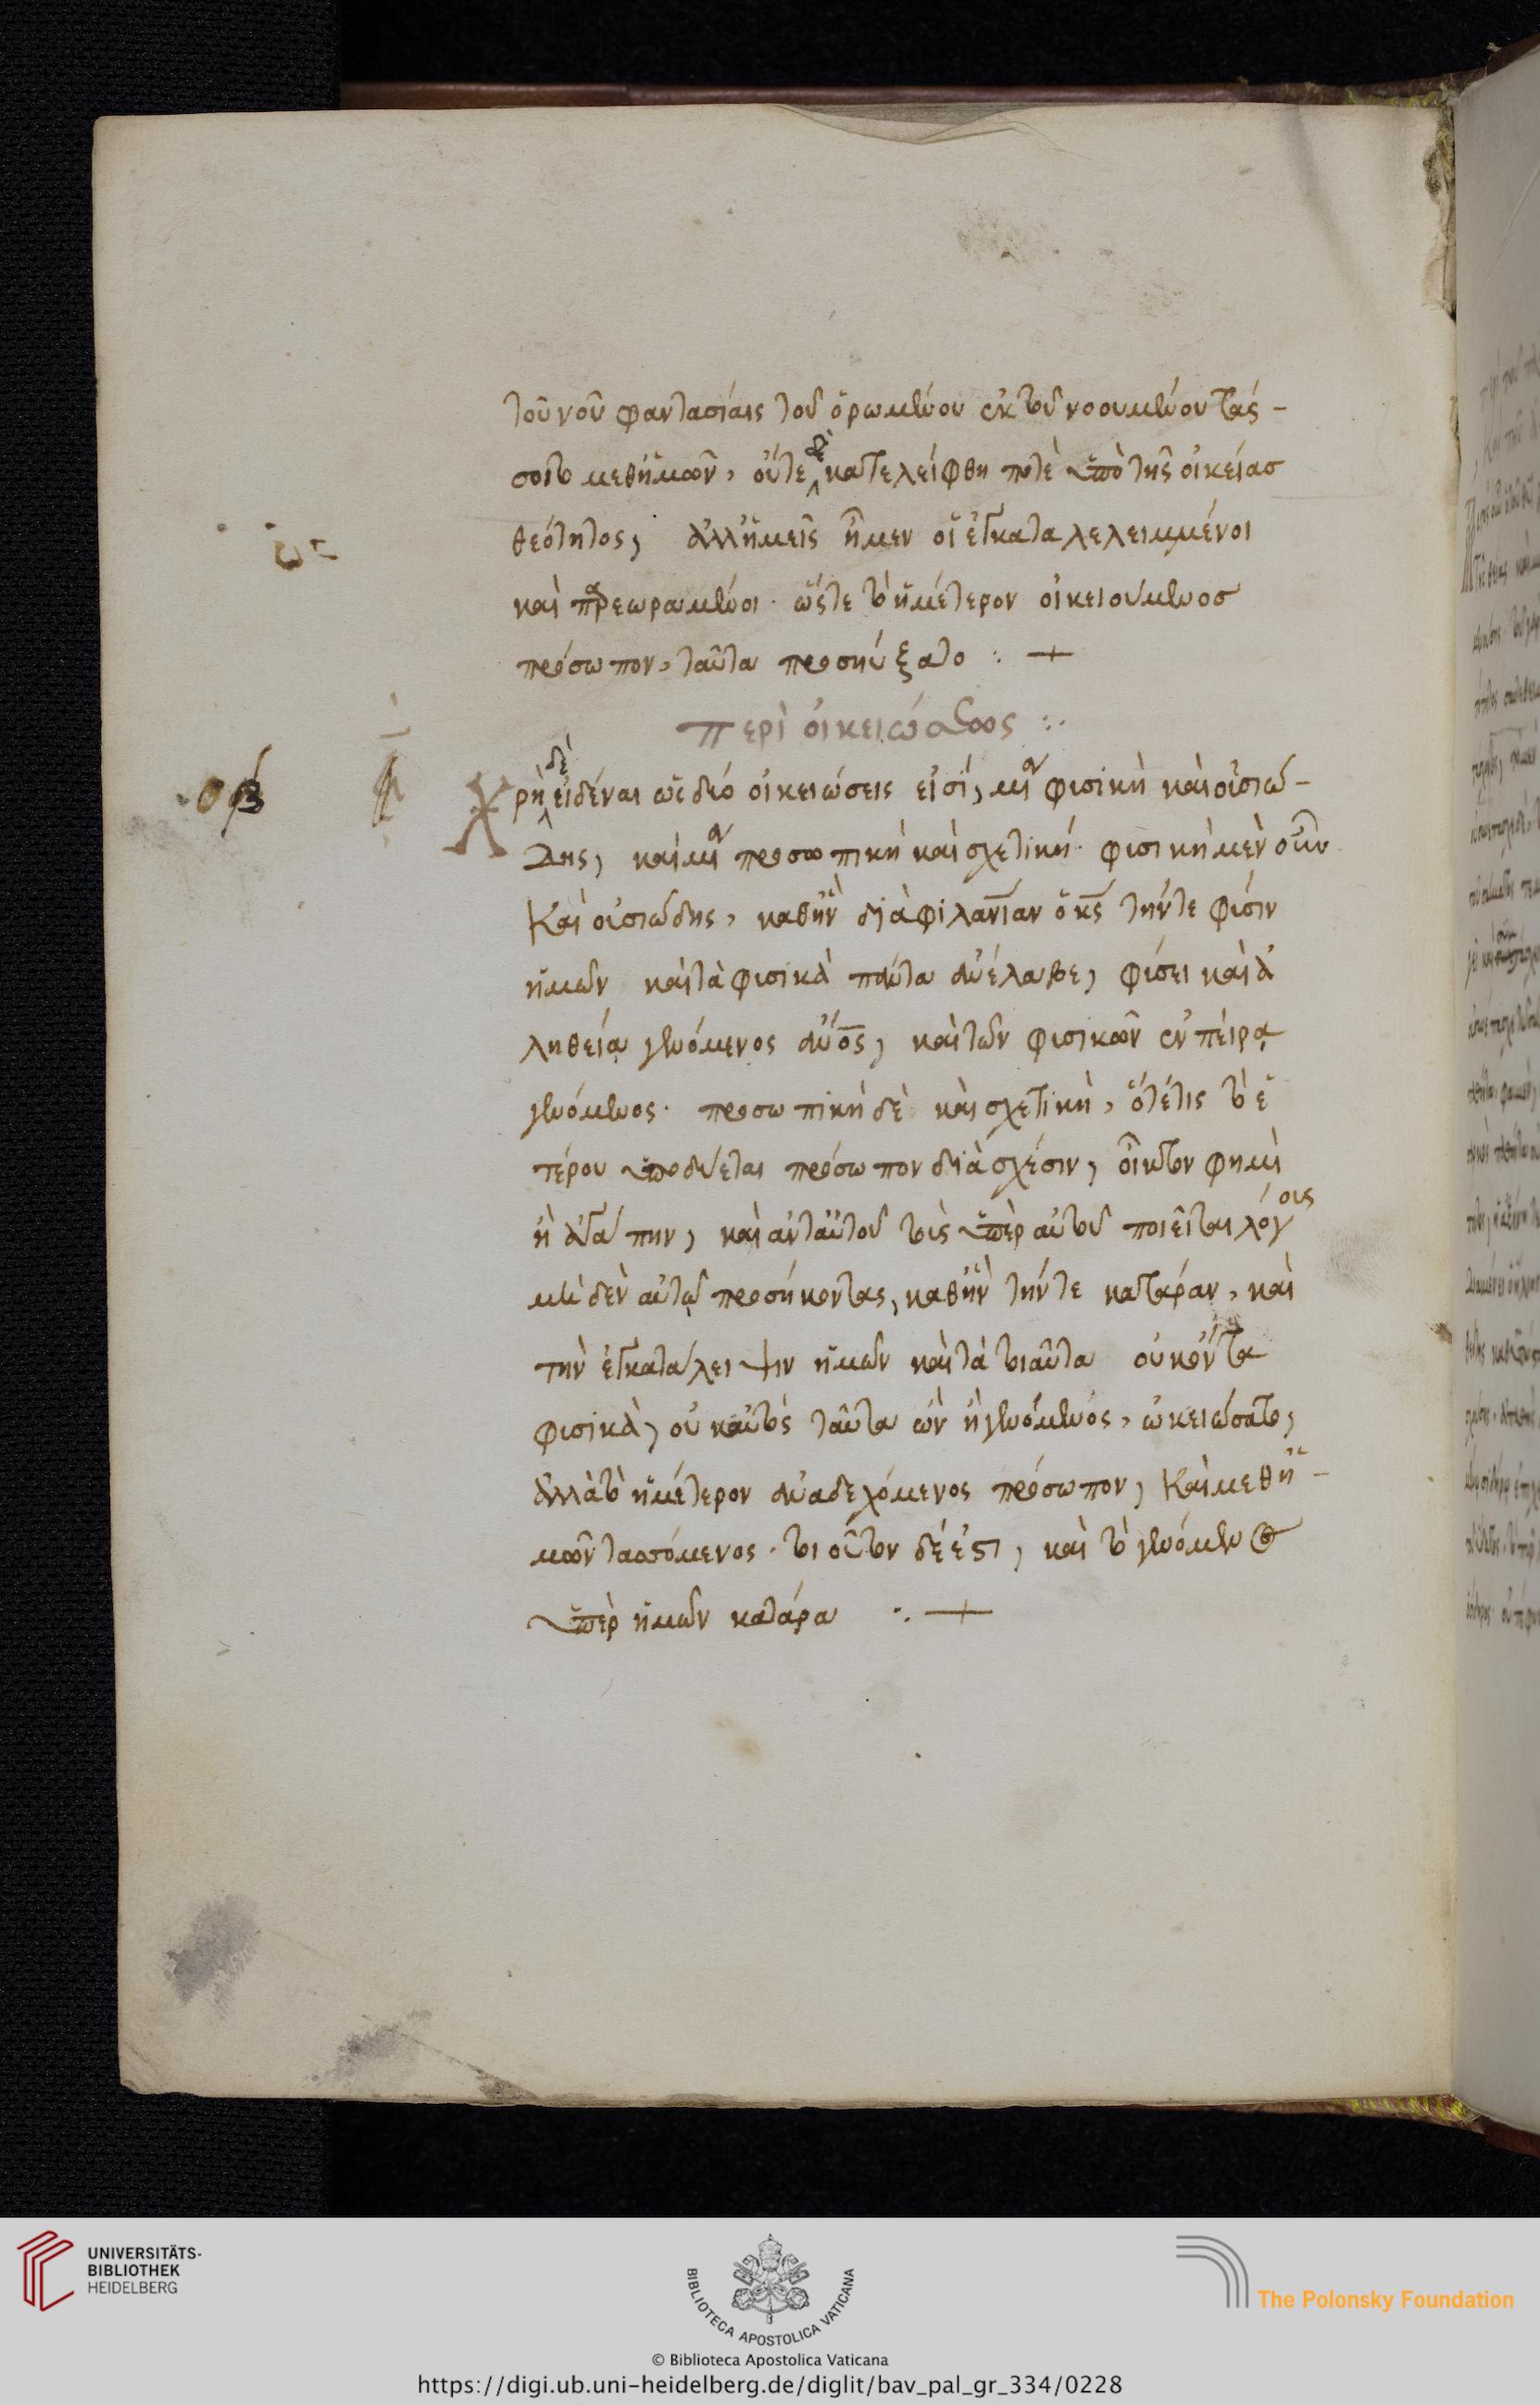 τοῦ νοῦ φαντασίαις τοῦ ὁρωμένου ἐκ τοῦ νοουμένου τάσ-
σοιτο μεθ' ἡμῶν, οὔτε δὲ κατελείφθη ποτὲ ὑπὸ τῆς οἰκείας
θεότητος, ἀλλ' ἡμεῖς ἦμεν οἱ ἐγκαταλελειμμένοι
καὶ παρεωραμένοι· ὥστε τὸ ἡμέτερον οἰκειούμενος
πρόσωπον, ταῦτα προσηύξατο :+
περὶ οἰκειώσεως :·
οβ
Χρὴ δὲ εἰδέναι ὡς δύο οἰκειώσεις εἰσί, μία φυσικὴ καὶ οὐσιώ-
δης, καὶ μία προσωπικὴ καὶ σχετική· φυσικὴ μὲν οὖν
καὶ οὐσιώδης, καθ' ἣν διὰ φιλανίαν ὁ κς τήν τε φύσιν
ἡμῶν καὶ τὰ φυσικὰ πάντα ἀνέλαβε, φύσει καὶ ἀ
ληθείᾳ γενόμενος ἄνος, καὶ τῶν φυσικῶν ἐν πείρᾳ
γενόμενος· προσωπικὴ δὲ καὶ σχετικὴ, ὅτέ τις τὸ ἑ
τέρου ὑποδύεται πρόσωπον διὰ σχέσιν, οἶκτον φημὶ
ἢ ἀγάπην, καὶ ἀντ' αὐτοῦ τοὺς ὑπὲρ αὐτοῦ ποιεῖται λόγους
μηδὲν αὐτῷ προσήκοντας, καθ' ἣν τήν τε κατάραν, καὶ
τὴν ἐγκατάλειψιν ἡμῶν καὶ τὰ τοιαῦτα οὐκ ὄντα
φυσικὰ, οὐκ αὐτὸς ταῦτα ὢν ἢ γενόμενος, ὠκειώσατο,
ἀλλὰ τὸ ἡμέτερον ἀναδεχόμενος πρόσωπον, καὶ μεθ' ἡ-
μῶν τασσόμενος· τοιοῦτον δέ ἐστι, καὶ τὸ γενόμενος
ὑπὲρ ἡμῶν κατάρα :+
UNIVERSITÄTS-
BIBLIOTHEK
HEIDELBERG
BIBLIOTECA APOSTOLICA VATICANA
The Polonsky Foundation
© Biblioteca Apostolica Vaticana
https://digi.ub.uni-heidelberg.de/diglit/bav_pal_gr_334/0228